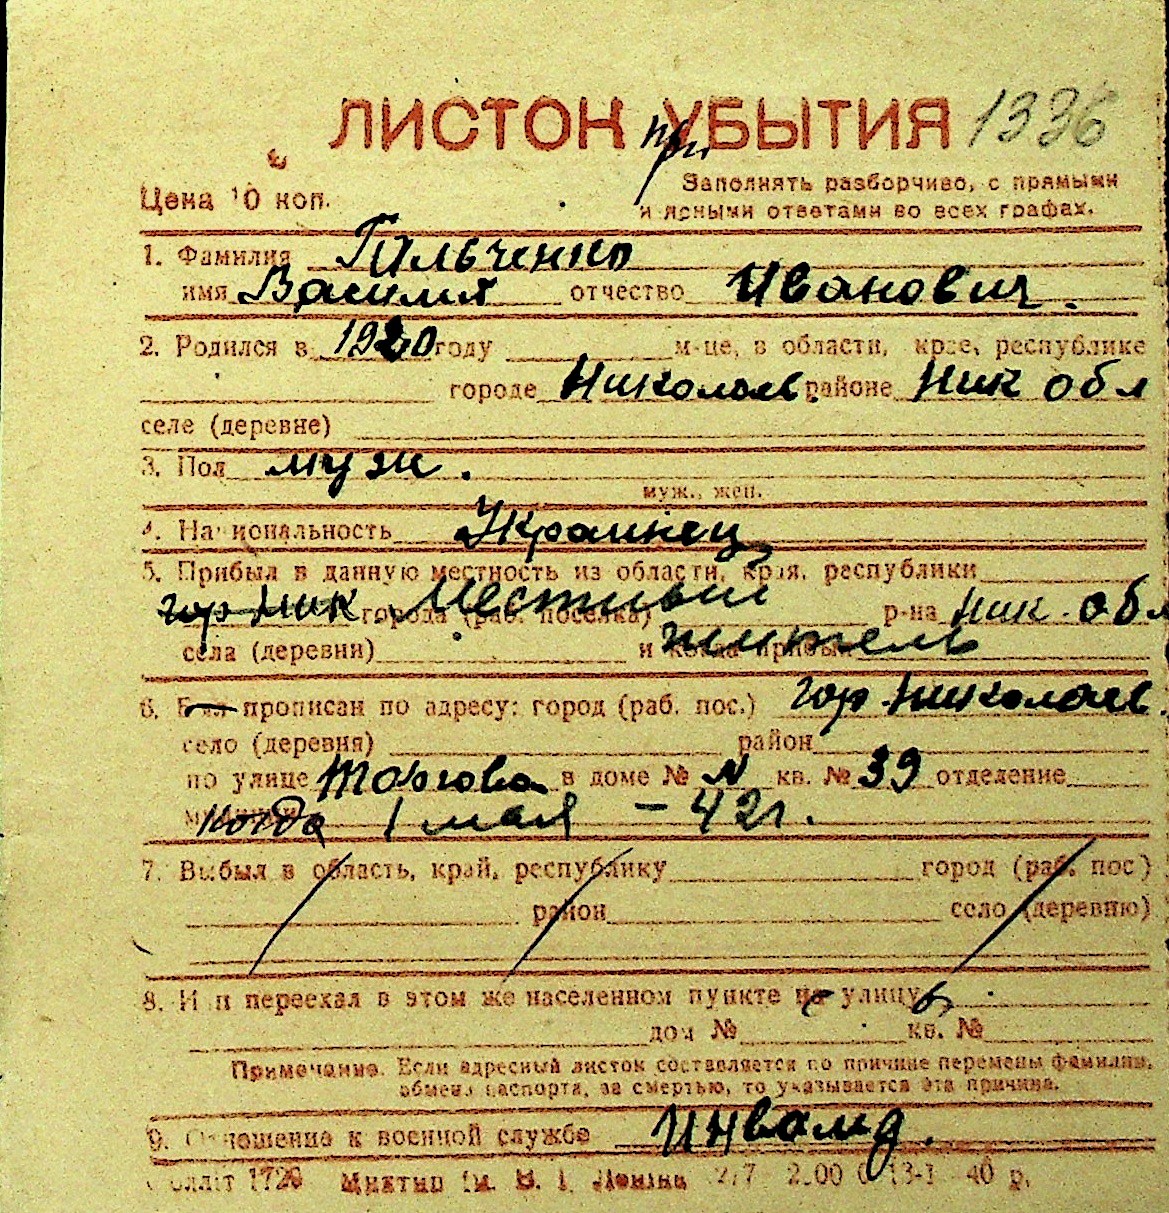 ЛИСТОК УБЫТИЯ 1336
при
Цена 10 коп.
Заполнять разборчиво, с прямыми
и ясными ответами во всех графах.
1. Фамилия Гильченко
имя Василий отчество Иванович.
2. Родился в 1920 году м-це, в области, крае, республике
городе Николаев. районе Ник обл
селе (деревне)
3. Пол муж.
муж., жен.
4. Национальность Украинец
5. Прибыл в данную местность из области, края, республики
гор Ник. города (раб. поселка) Местный р-на Ник. обл
села (деревни) и когда прибыл житель
6. Был прописан по адресу: город (раб. пос.) гор. Николаев.
село (деревня) район
по улице Торгова в доме № N кв. № 39 отделение
Когда 1 мая - 42 г.
7. Выбыл в область, край, республику город (раб. пос)
район село (деревню)
8. Или переехал в этом же населенном пункте на улицу
дом № кв. №
Примечание. Если адресный листок составляется по причине перемены фамилии,
обмена паспорта, за смертью, то указывается эта причина.
9. Отношение к военной службе Инвалид.
1720 им. В. І. Леніна 40 р.